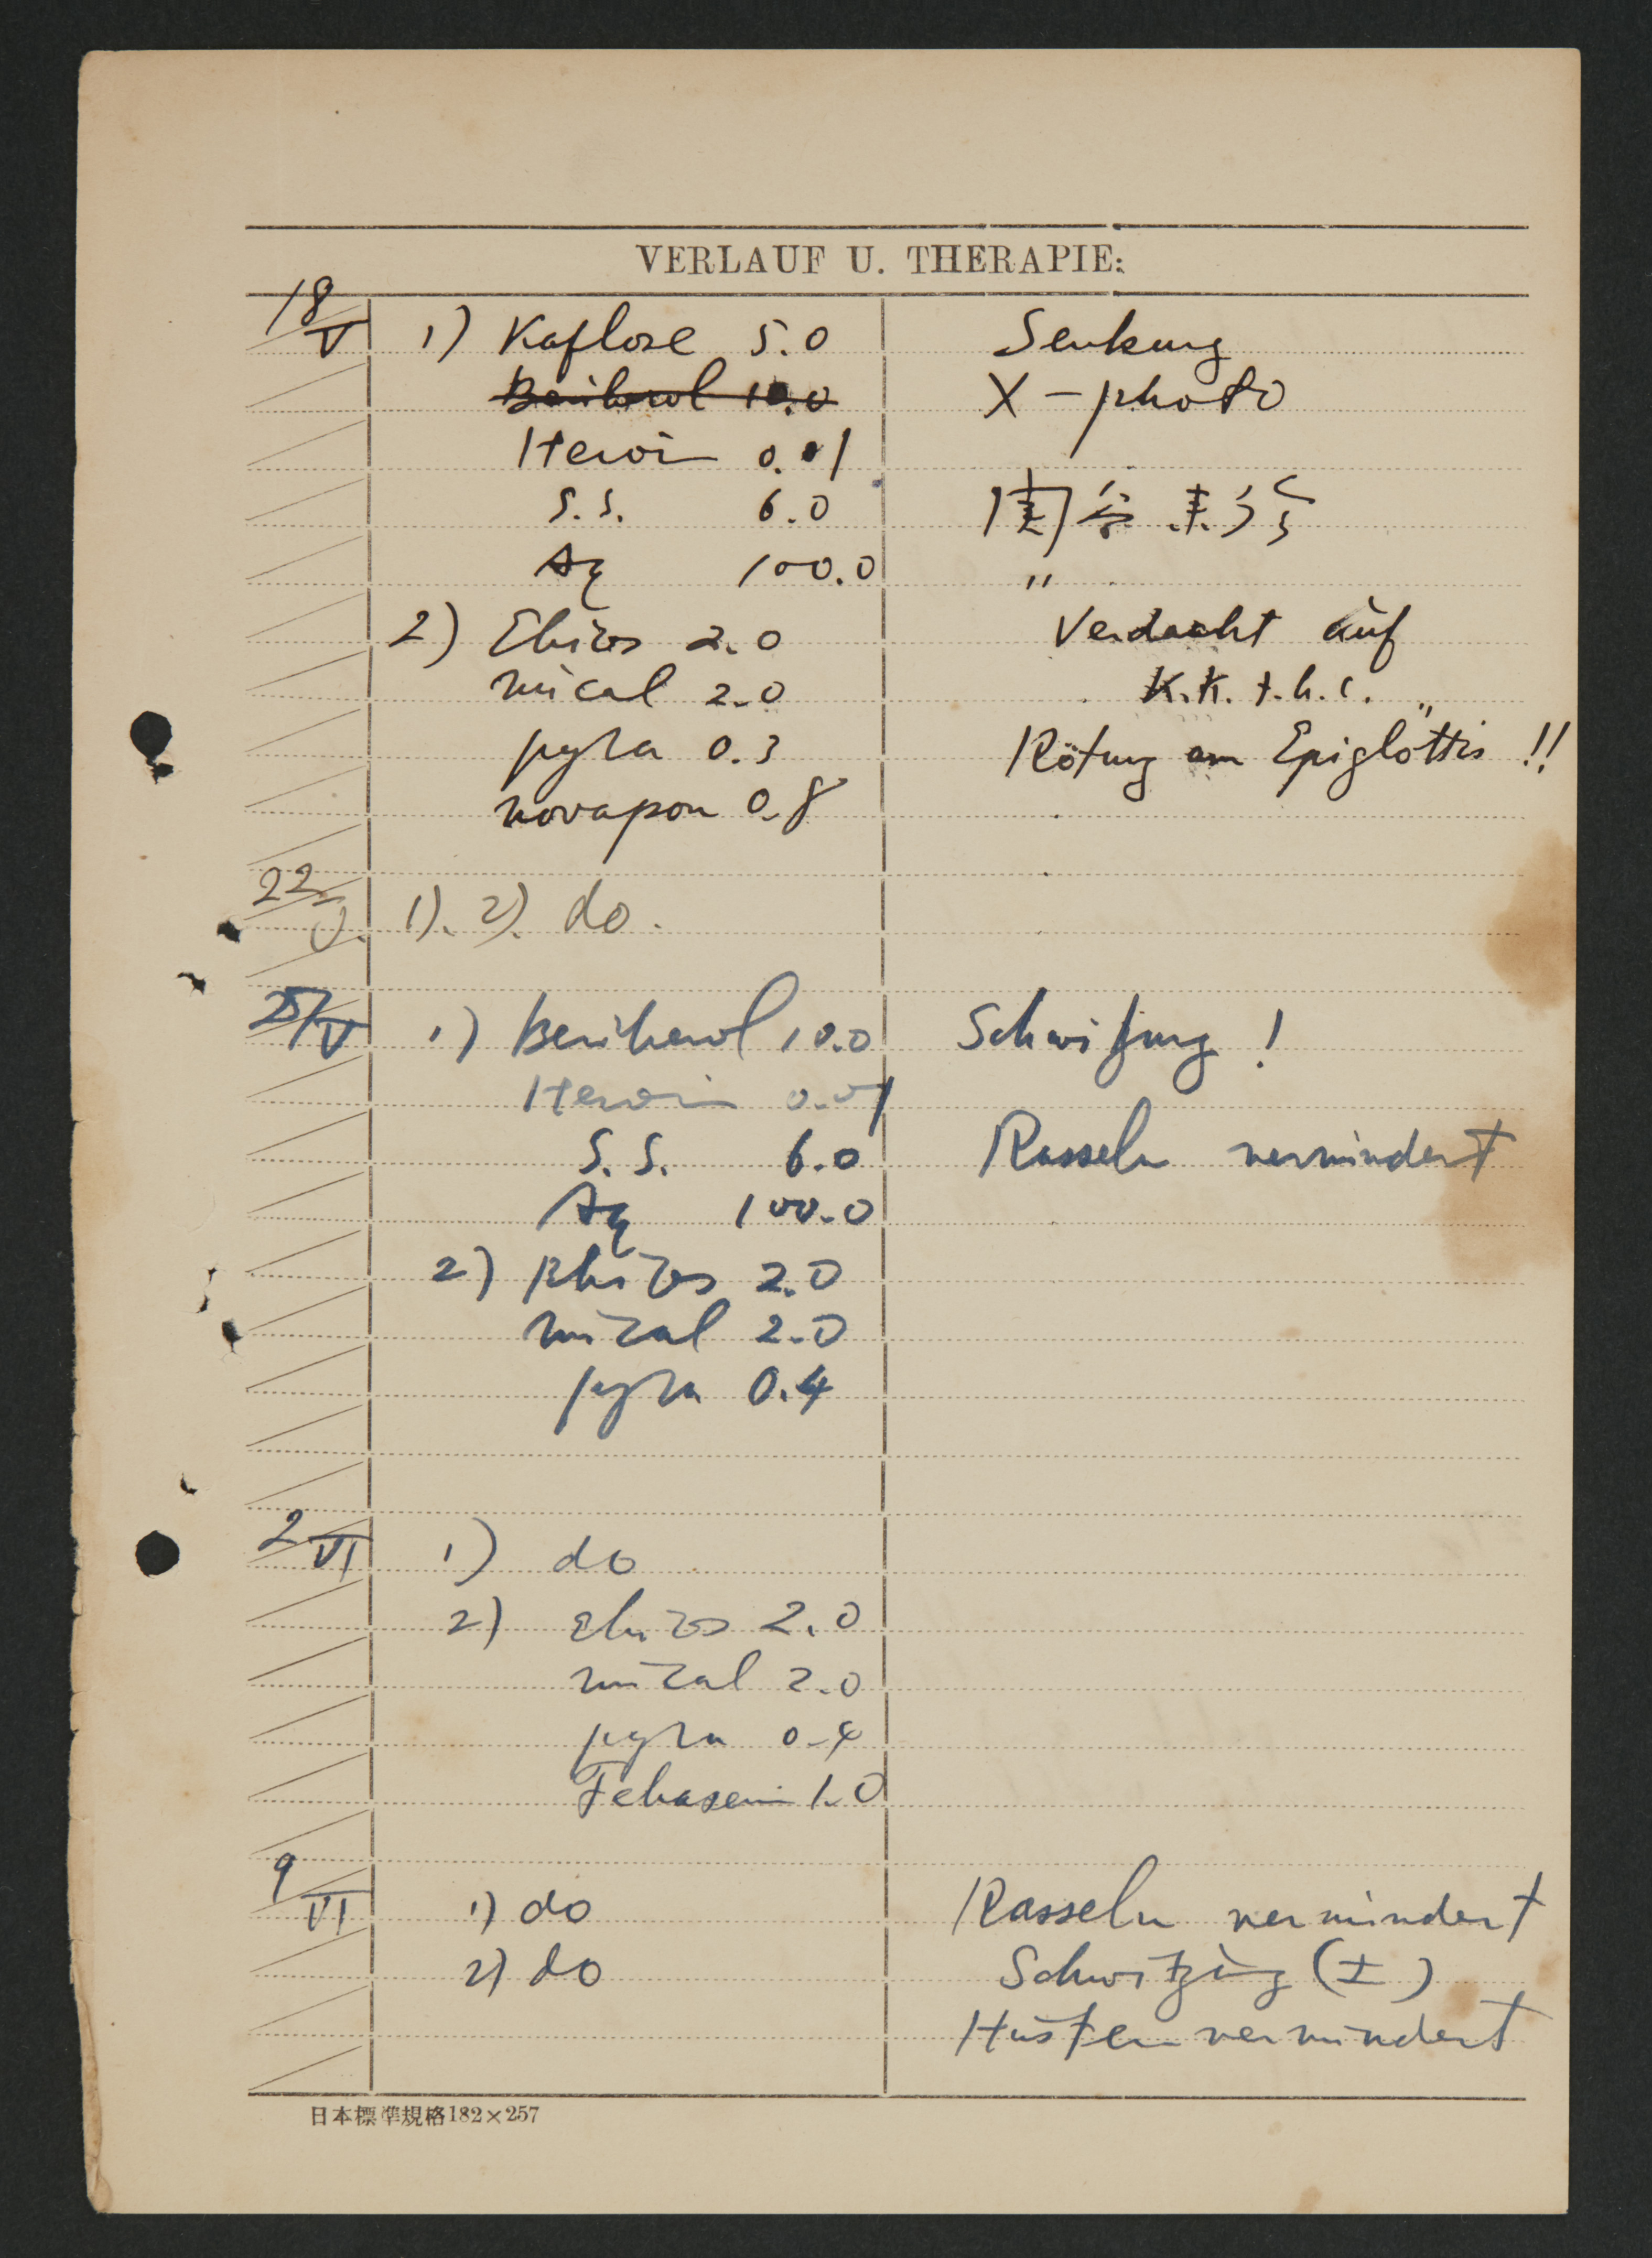 VERLAUF U. THERAPIE:
18/V 1) Kaflose 5.0 Senkung
Beriherol 10.0 X-photo
Heroin 0.01
S.S. 6.0 関谷
Aq 100.0 "
2) Ebios 2.0 Verdacht auf
mical 2.0 K.K. t.b.c.
pyra 0.3 Rötung am Epiglottis !!
novapon 0.8
22/V. 1). 2). do.
25/V 1) Beriherol 10.0 Schwitzung !
Heroin 0.01
S.S. 6.0 Rasseln vermindert
Aq 100.0
2) Ebios 2.0
mical 2.0
pyra 0.4
2/VI 1) do
2) Ebios 2.0
mical 2.0
pyra 0.4
1.0
9/VI 1) do Rasseln vermindert
2) do Schwitzung (±)
Husten vermindert
日本標準規格182×257